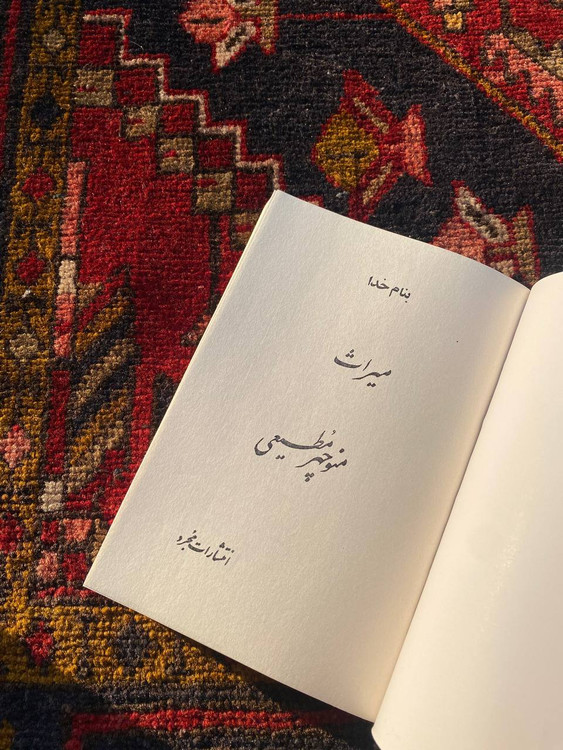 بنام خدا
میراث
منوچهر مُطیعی
انتشارات منفرد